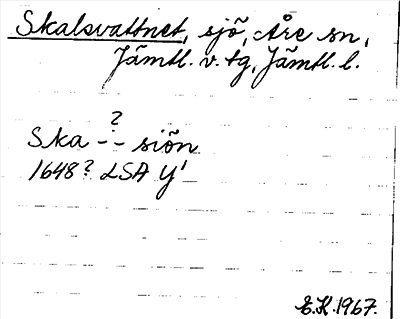 Skalsvattnet, sjö, Åre sn,
Jämtl. v. tg, Jämtl. l.
?
Ska - - siön
1648? LSA Y¹
E.K. 1967.